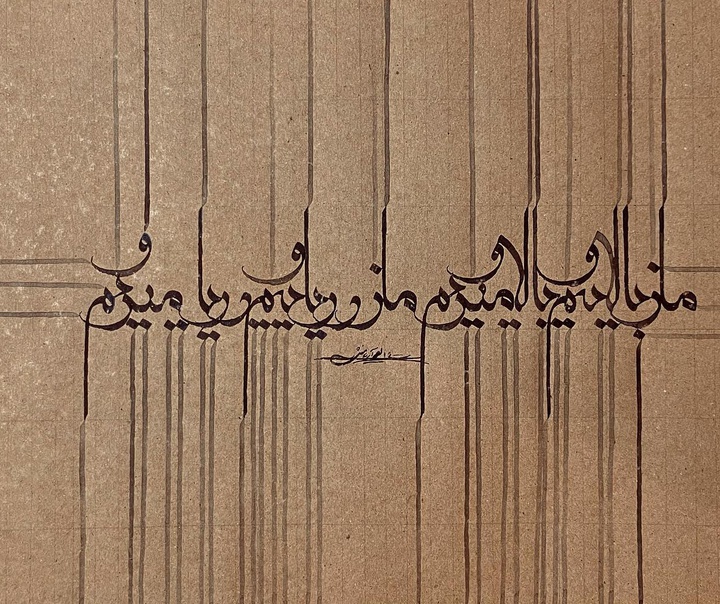 ما ز بالاییم و بالا میرویم ما ز دریاییم و دریا میرویم